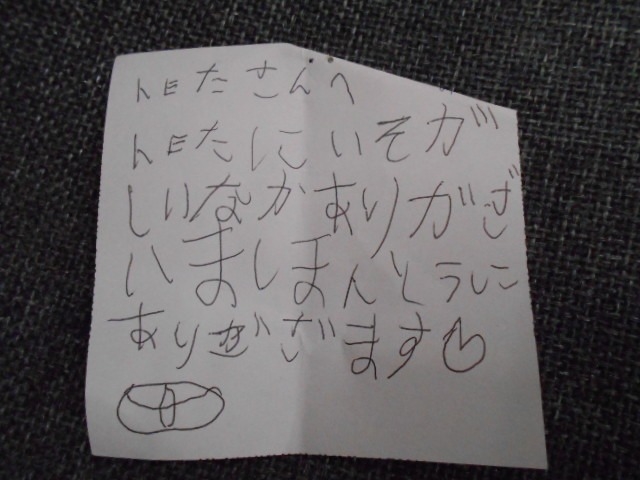 トEたさんへ
トEたにいそが
しいなかありがざ
いましほんとうに
ありがざます